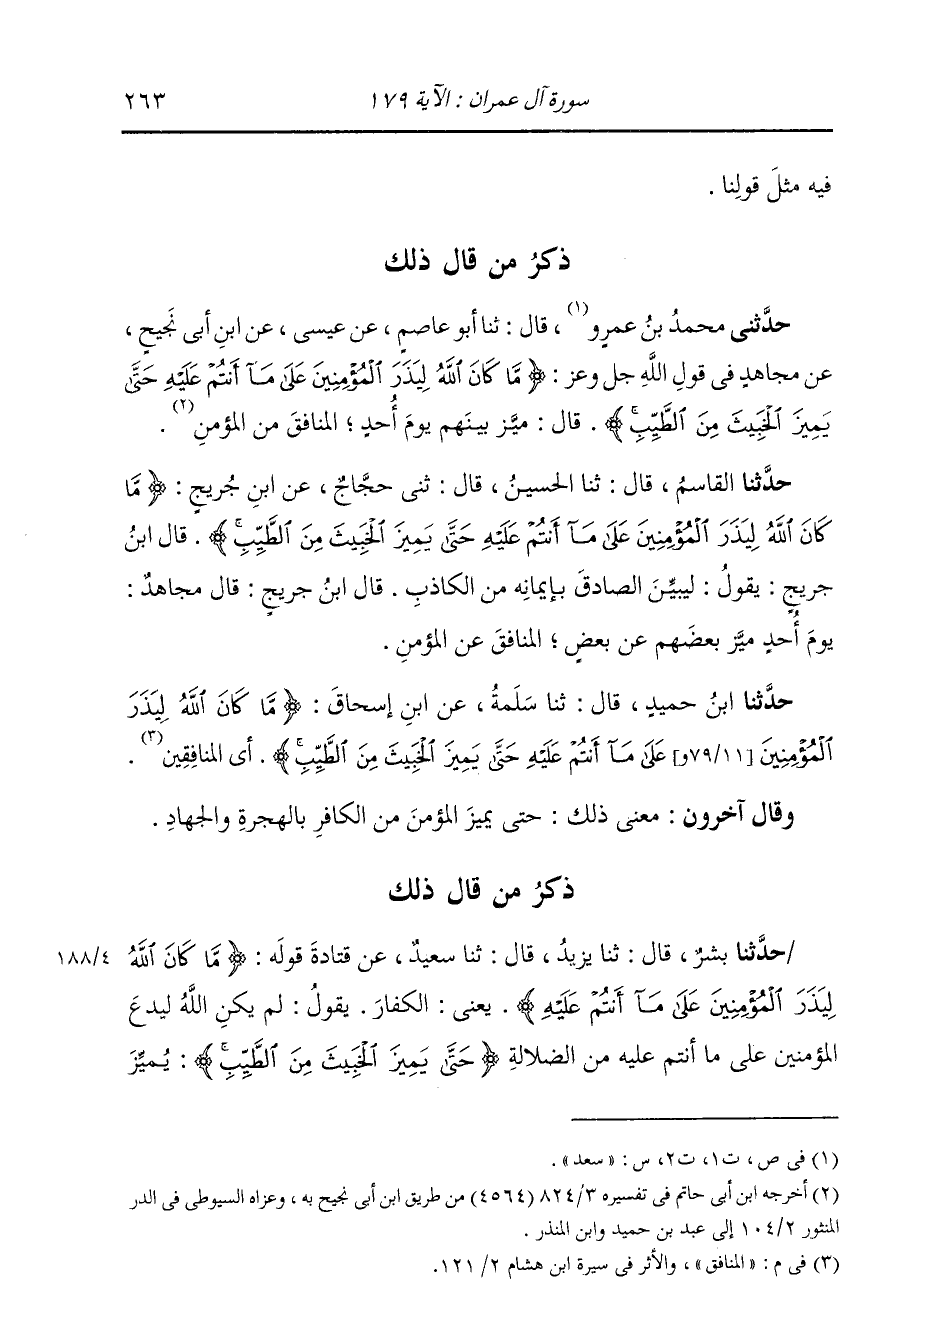 سورة آل عمران : الآية ١٧٩ ٢٦٣
فيه مثلَ قولِنا .
ذكرُ من قال ذلك
حدَّثنى محمدُ بنُ عمرٍو(١) ، قال : ثنا أبو عاصمٍ ، عن عيسى ، عن ابنِ أبى نَجيحٍ ،
عن مجاهدٍ فى قولِ اللَّهِ جل وعز : ﴿ مَّا كَانَ ٱللَّهُ لِيَذَرَ ٱلْمُؤْمِنِينَ عَلَىٰ مَآ أَنتُمْ عَلَيْهِ حَتَّىٰ
يَمِيزَ ٱلْخَبِيثَ مِنَ ٱلطَّيِّبِۚ ﴾ . قال : ميَّز بينَهم يومَ أُحدٍ ؛ المنافقَ من المؤمنِ(٢) .
حدَّثنا القاسمُ ، قال : ثنا الحسينُ ، قال : ثنى حجَّاجٌ ، عن ابنِ جُريجٍ : ﴿ مَّا
كَانَ ٱللَّهُ لِيَذَرَ ٱلْمُؤْمِنِينَ عَلَىٰ مَآ أَنتُمْ عَلَيْهِ حَتَّىٰ يَمِيزَ ٱلْخَبِيثَ مِنَ ٱلطَّيِّبِۚ ﴾ . قال ابنُ
جريجٍ : يقولُ : ليبيِّنَ الصادقَ بإيمانِه من الكاذبِ . قال ابنُ جريجٍ : قال مجاهدٌ :
يومَ أُحدٍ ميَّز بعضَهم عن بعضٍ ؛ المنافقَ عن المؤمنِ .
حدَّثنا ابنُ حميدٍ ، قال : ثنا سَلَمةُ ، عن ابنِ إسحاقَ : ﴿ مَّا كَانَ ٱللَّهُ لِيَذَرَ
ٱلْمُؤْمِنِينَ [٧٩/١١و] عَلَىٰ مَآ أَنتُمْ عَلَيْهِ حَتَّىٰ يَمِيزَ ٱلْخَبِيثَ مِنَ ٱلطَّيِّبِۚ ﴾ . أى المنافِقِين(٣) .
وقال آخرون : معنى ذلك : حتى يميزَ المؤمنَ من الكافرِ بالهجرةِ والجهادِ .
ذكرُ من قال ذلك
/حدَّثنا بشرٌ ، قال : ثنا يزيدُ ، قال : ثنا سعيدٌ ، عن قتادةَ قولَه : ﴿ مَّا كَانَ ٱللَّهُ ١٨٨/٤
لِيَذَرَ ٱلْمُؤْمِنِينَ عَلَىٰ مَآ أَنتُمْ عَلَيْهِ ﴾ . يعنى : الكفارَ . يقولُ : لم يكنِ اللَّهُ ليدعَ
المؤمنين على ما أنتم عليه من الضلالةِ ﴿ حَتَّىٰ يَمِيزَ ٱلْخَبِيثَ مِنَ ٱلطَّيِّبِۚ ﴾ : يُميِّزَ
(١) فى ص ، ت١، ت٢، س : « سعد » .
(٢) أخرجه ابن أبى حاتم فى تفسيره ٨٢٤/٣ (٤٥٦٤) من طريق ابن أبى نجيح به ، وعزاه السيوطى فى الدر
المنثور ١٠٤/٢ إلى عبد بن حميد وابن المنذر .
(٣) فى م : « المنافق » ، والأثر فى سيرة ابن هشام ٢/ ١٢١.